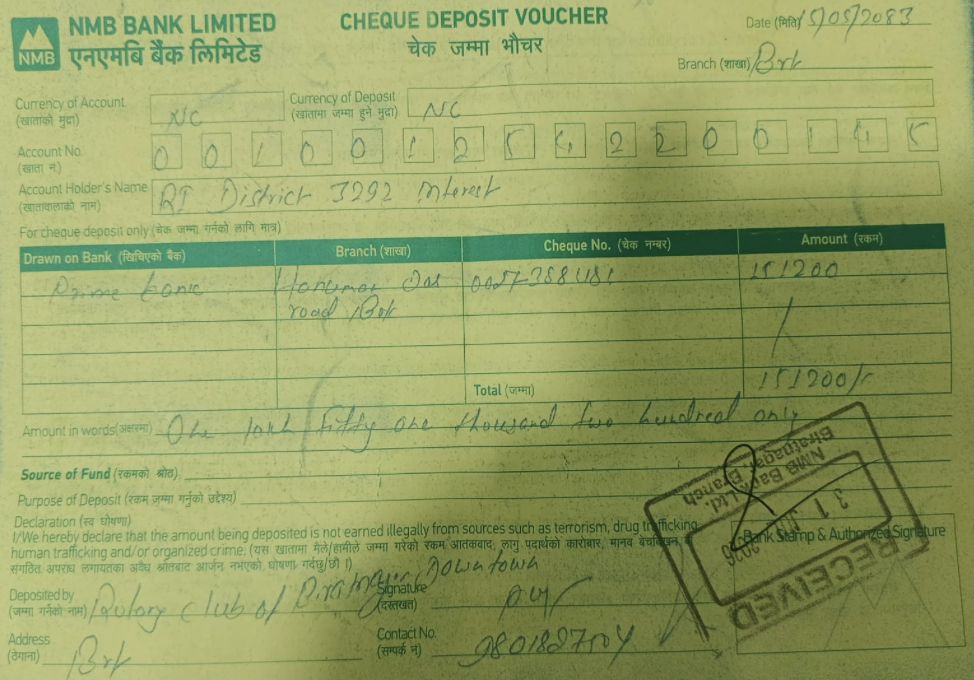 NMB BANK LIMITED
एनएमबि बैंक लिमिटेड
NMB
CHEQUE DEPOSIT VOUCHER
चेक जम्मा भौचर
Date (मिति) 15/05/2083
Branch (शाखा) Brt
Currency of Account (खाताको मुद्रा) NC
Currency of Deposit (खातामा जम्मा हुने मुद्रा) NC
Account No. (खाता नं.)
Account Holder's Name (खातावालाको नाम) RI District 3292 Interest
For cheque deposit only (चेक जम्मा गर्नको लागि मात्र)
Drawn on Bank (खिचिएको बैंक) Branch (शाखा) Cheque No. (चेक नम्बर) Amount (रकम)
Prime bank Hanuman Das 151200
road, Brt
Total (जम्मा) 151200/-
Amount in words (अक्षरमा) One lakh fifty one thousand two hundred only
Source of Fund (रकमको श्रोत)
Purpose of Deposit (रकम जम्मा गर्नुको उद्देश्य)
Declaration (स्व घोषणा)
I/We hereby declare that the amount being deposited is not earned illegally from sources such as terrorism, drug trafficking,
human trafficking and/or organized crime. (यस खातामा मैले/हामीले जम्मा गरेको रकम आतंकवाद, लागु पदार्थको कारोबार, मानव बेचबिखन,
संगठित अपराध लगायतका अवैध श्रोतबाट आर्जन नभएको घोषणा गर्दछु/छौं ।)
NMB Bank Ltd.
Biratnagar Branch
RECEIVED
Bank Stamp & Authorized Signature
Deposited by (जम्मा गर्नेको नाम) Rotary Club of Biratnagar Downtown
Signature (दस्तखत)
Address (ठेगाना) Brt
Contact No. (सम्पर्क नं) 9801827504